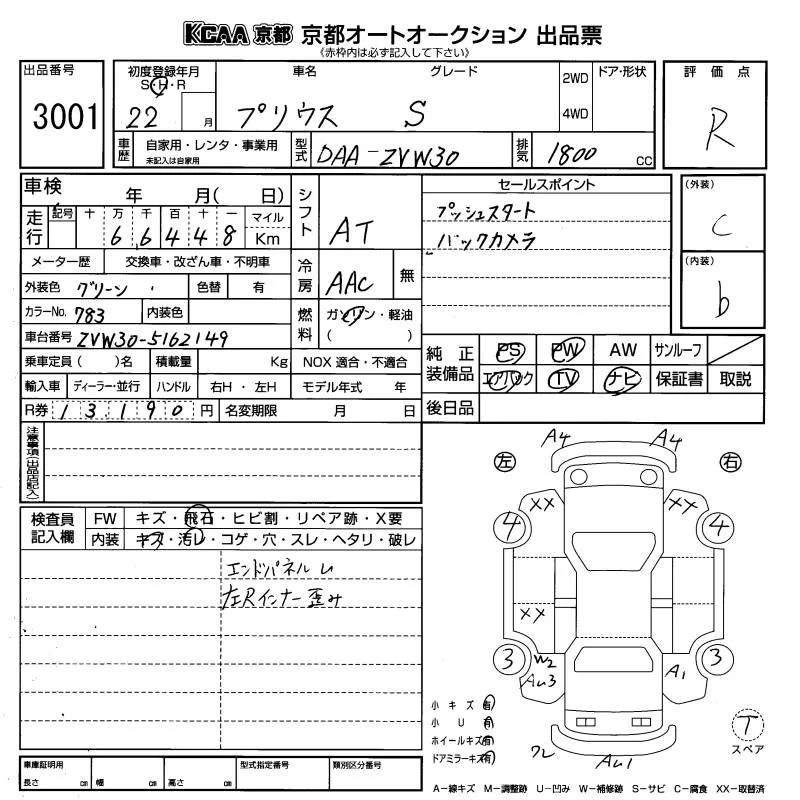 KCAA 京都 京都オートオークション 出品票
《赤枠内は必ず記入して下さい》
出品番号
3001
初度登録年月
S・H・R
22 月
車名
グレード
プリウス S
2WD
4WD
ドア・形状
評価点
R
車歴
自家用・レンタ・事業用
未記入は自家用
型式
DAA-ZVW30
排気
1800 CC
車検
年 月( 日)
走行
記号 十 万 千 百 十 一 マイル
6 6 4 4 8 Km
メーター歴 交換車・改ざん車・不明車
外装色 グリーン 色替 有
カラーNo. 783 内装色
車台番号 ZVW30-5162149
乗車定員 ( )名 積載量 Kg
輸入車 ディーラー・並行 ハンドル 右H・左H
R券 13,190 円 名変期限 月 日
シフト
AT
冷房
AAC 無
燃料
ガソリン・軽油
( )
NOX 適合・不適合
モデル年式 年
セールスポイント
プッシュスタート
バックカメラ
(外装)
C
(内装)
b
純正装備品
PS PW AW サンルーフ
エアバック TV ナビ 保証書 取説
後日品
注意事項(出品店記入)
検査員記入欄
FW キズ・飛石・ヒビ割・リペア跡・X要
内装 キズ・汚レ・コゲ・穴・スレ・ヘタリ・破レ
エンドパネルU
左Rインナー歪み
左 右
A4 A4
XX XX
4 4
XX
3 W2 3
AU3 A1
AU1
小キズ 有
小U 有
ホイールキズ 有
ドアミラーキズ 有
T
スペア
A−線キズ M−調整跡 U−凹み W−補修跡 S−サビ C−腐食 XX−取替済
車庫証明用
長さ cm 幅 cm 高さ cm
型式指定番号
類別区分番号